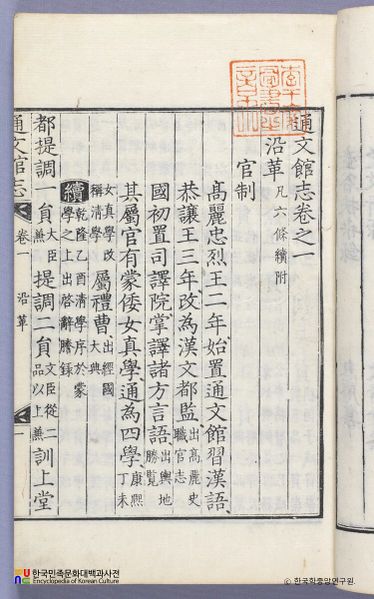 通文館志卷之一
沿革 凡六條續附
官制
高麗忠烈王二年始置通文館習漢語
恭讓王三年改為漢文都監 出高麗史職官志
國初置司譯院掌譯諸方言語 出輿地勝覽
其屬官有蒙倭女真學通為四學 康熙丁未
女真學改稱清學 屬禮曹 出經國大典
續 乾隆乙酉清學序於蒙學之上出啓辭謄錄
都提調一員 大臣兼 提調二員 文臣從二品以上兼 訓上堂
通文館志 卷一 沿革 一
한국민족문화대백과사전
Encyclopedia of Korean Culture
© 한국학중앙연구원